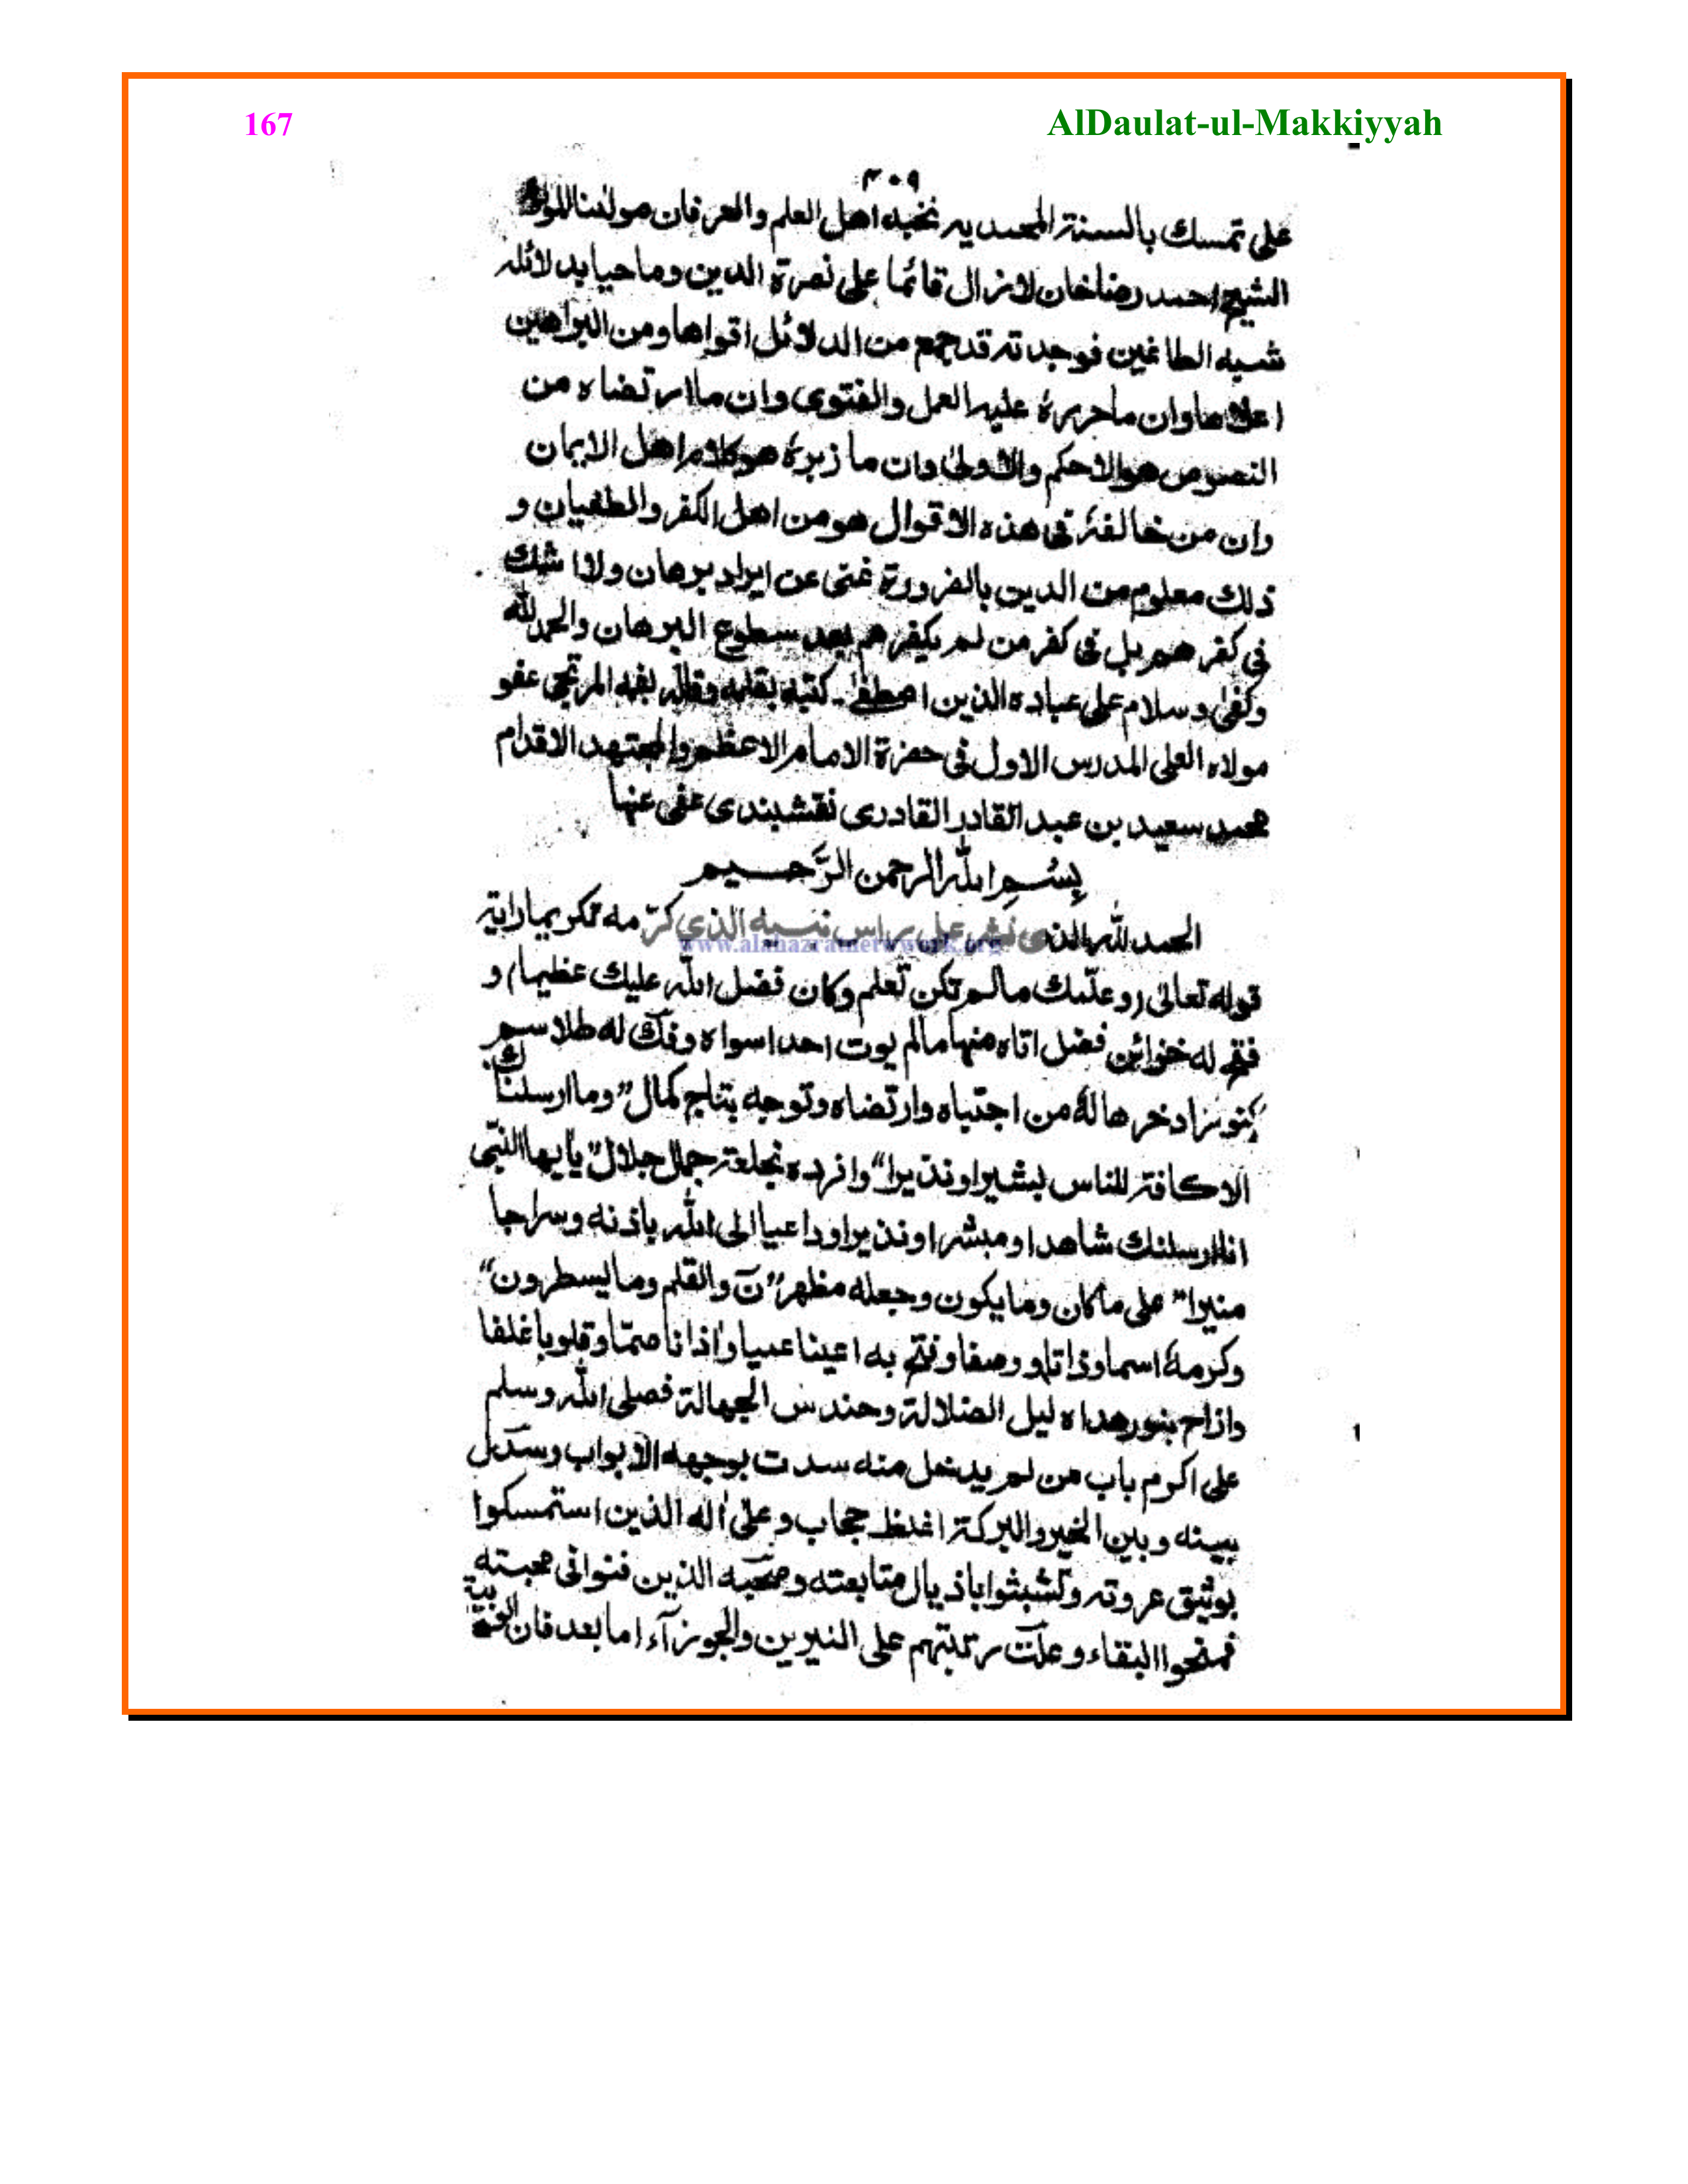 167
AlDaulat-ul-Makkiyyah
٣٠٩
على تمسك بالسنة المحمديه نخبه اهل العلم والعرفان مولٰنا
الشيخ احمد رضاخان لازال قائما على نصرة الدين وماحيا بدلائله
شبه الطاغين فوجدته قد جمع من الدلائل اقواها ومن البراهين
اعلاها وان ماحررهٗ عليه العمل والفتوى وان ماارتضاه من
النصوص هوالاحكم والاولىٰ وان مازبرهٗ هوكلام اهل الايمان
وان من خالفهٗ فى هذه الاقوال هومن اهل الكفر والطغيان و
ذلك معلوم من الدين بالضرورة غنى عن ايراد برهان ولااشك
فى كفرهم بل فى كفر من لم يكفرهم بعد سطوع البرهان والحمدلله
وكفىٰ وسلام على عباده الذين اصطفىٰ۔ كتبه بقلمه وقاله بفمه المرتجى عفو
مولاه العلى المدرس الاول فى حضرة الامام الاعظم والمجتهد الاقدام
محمد سعيد بن عبدالقادر القادرى نقشبندى عفى عنهما
بِسْمِ الله الرحمن الرَّحسيم
الحمدلله الذى نشر على راس نبيه الذى كرّمه تكريما راية
قوله تعالىٰ (وعلّمك مالم تكن تعلم وكان فضل الله عليك عظيما) و
فتح له خزائن فضل اتاه منها مالم يوت احدا سواه وفكّ له طلاسم
كنوز ادخرها لهٗ من اجتباه وارتضاه وتوجه بتاج كمال” وماارسلناك
الاكافة للناس بشيرا ونذيرا“ وافرده بخلعة جمال جلال” يايهاالنبّى
اناارسلنك شاهدا ومبشرا ونذيرا وداعيا الى الله باذنه وسراجا
منيرا“ على ماكان ومايكون وجعله مظهر” نٓ والقلم ومايسطرون“
وكرمهٗ اسما وذاتا ووصفا وفتح به اعينا عميا واذانا صمّا وقلوبا غلفا
وازاح بنور هداه ليل الضلالة وحندس الجهالة فصلى الله وسلم
على اكرم باب من لم يدخل منه سدت بوجهه الابواب وسدّل
بينه وبين الخير والبركة اغلظ حجاب وعلىٰ اٰله الذين استمسكوا
بوثيق عروته وتشبثوا باذيال متابعته وصحبه الذين فنوا فى محبته
فمنحوا البقاء وعلت رتبتهم على النيرين والجوزآء اما بعد فان
www.alahazratnetwork.org